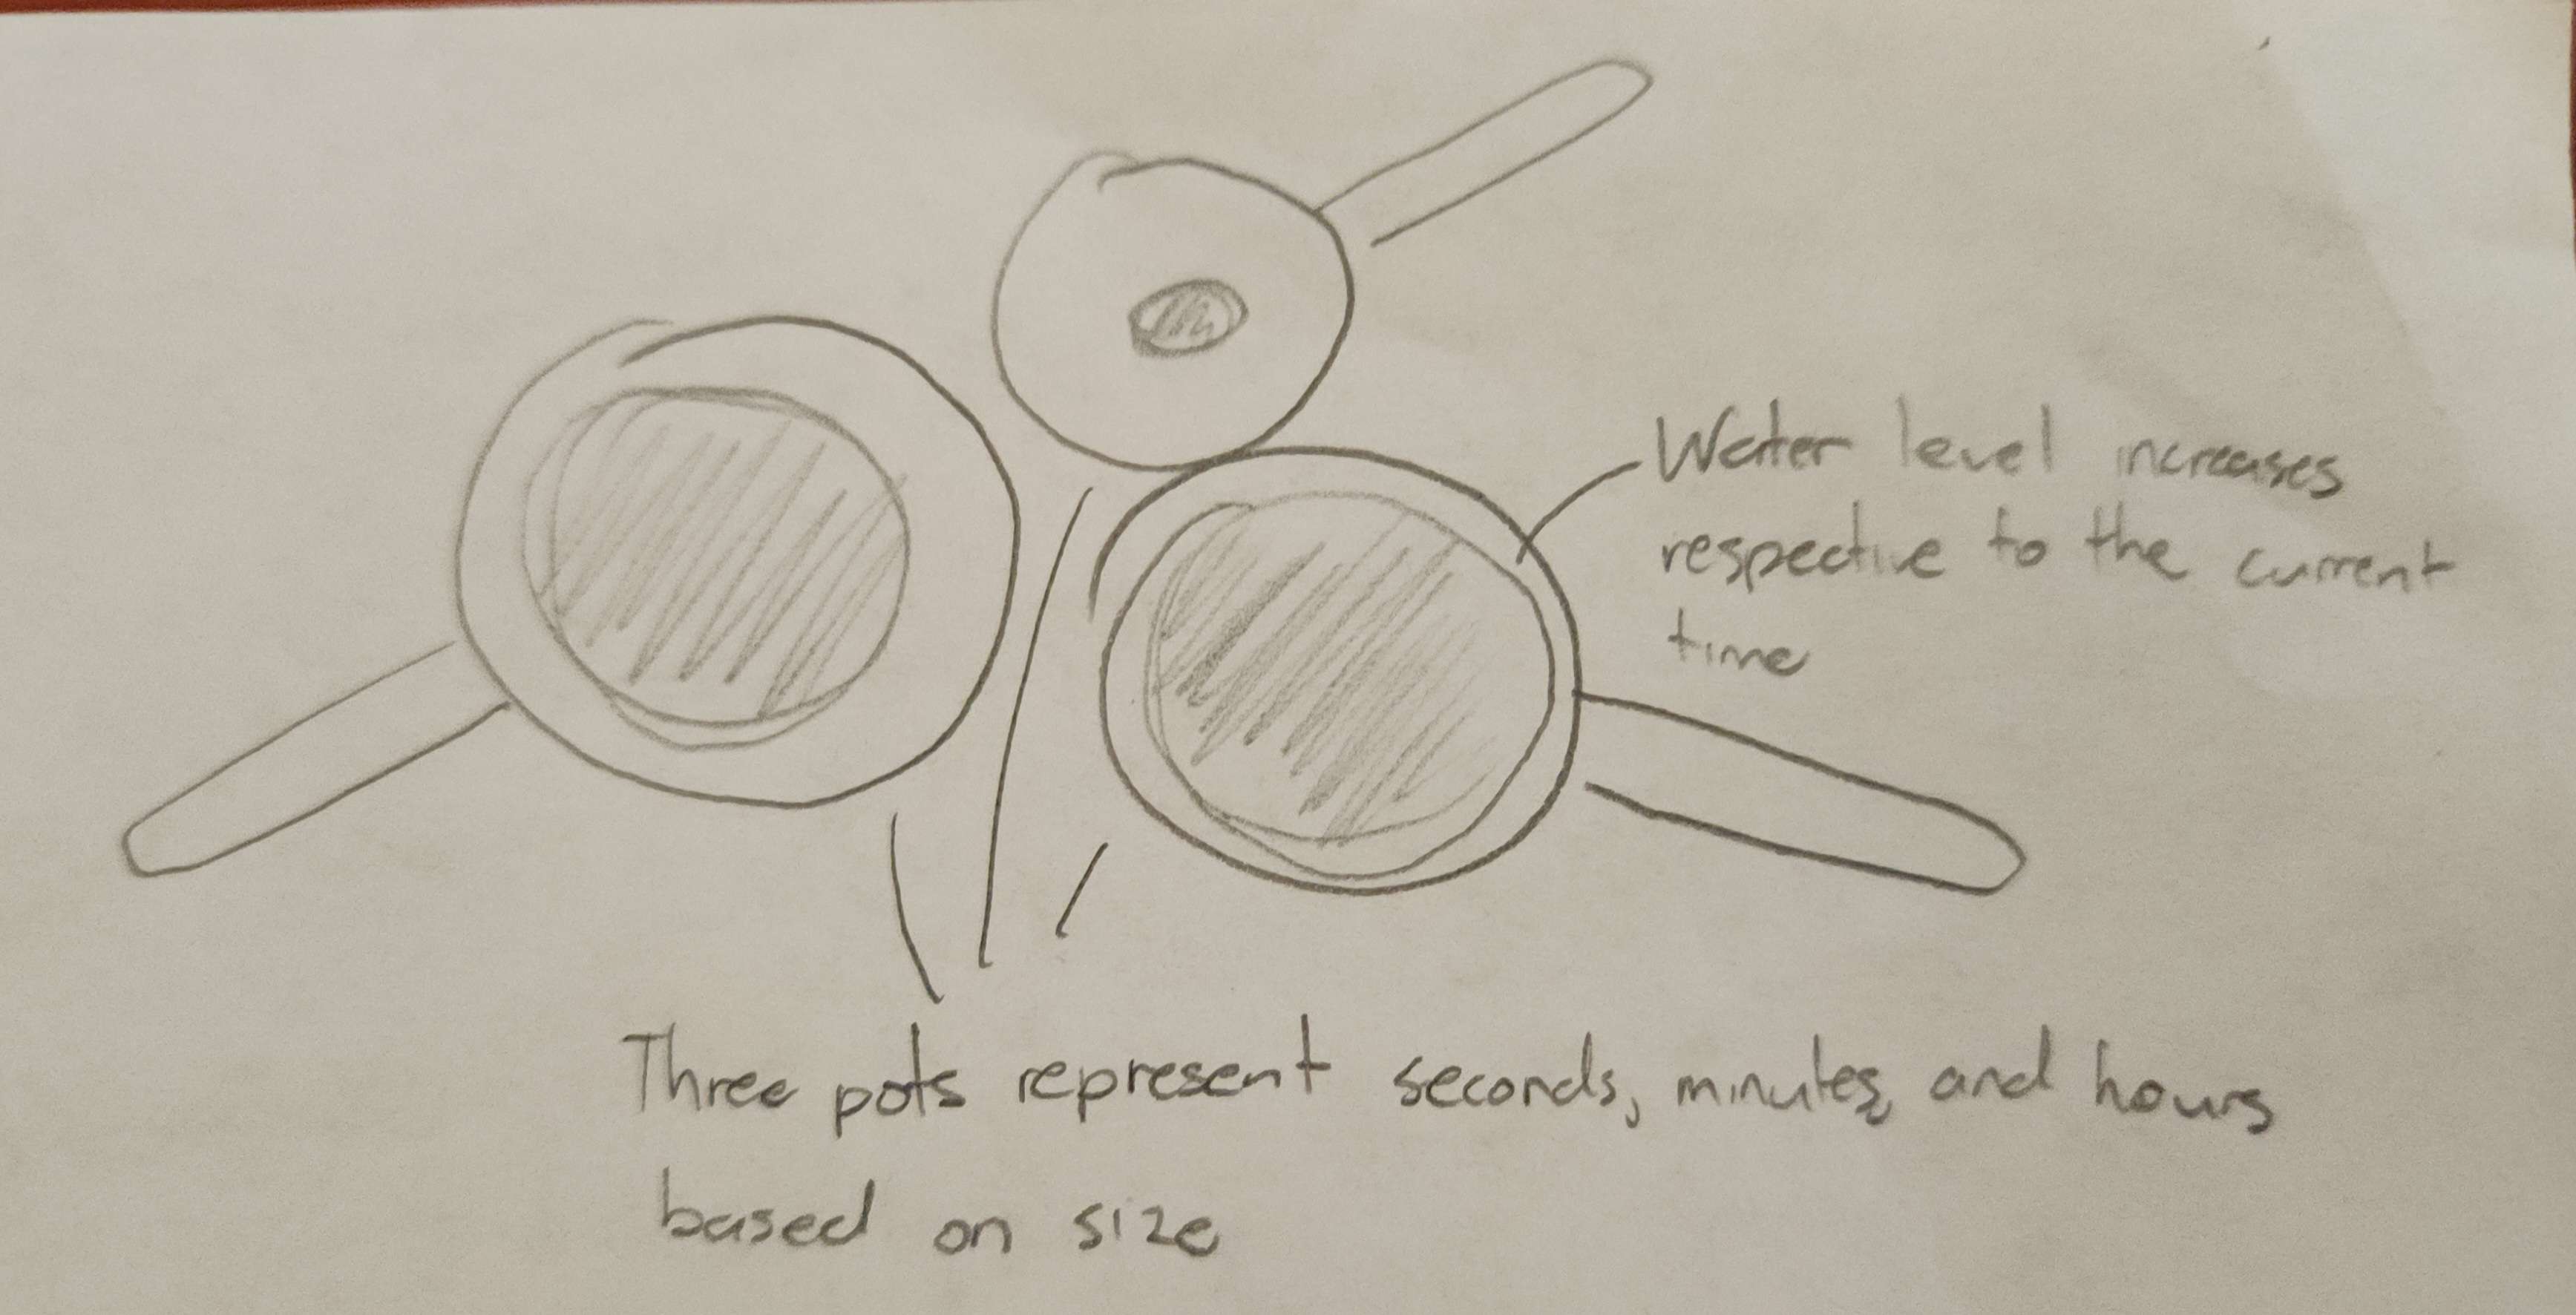 Water level increases
respective to the current
time
Three pots represent seconds, minutes, and hours
based on size